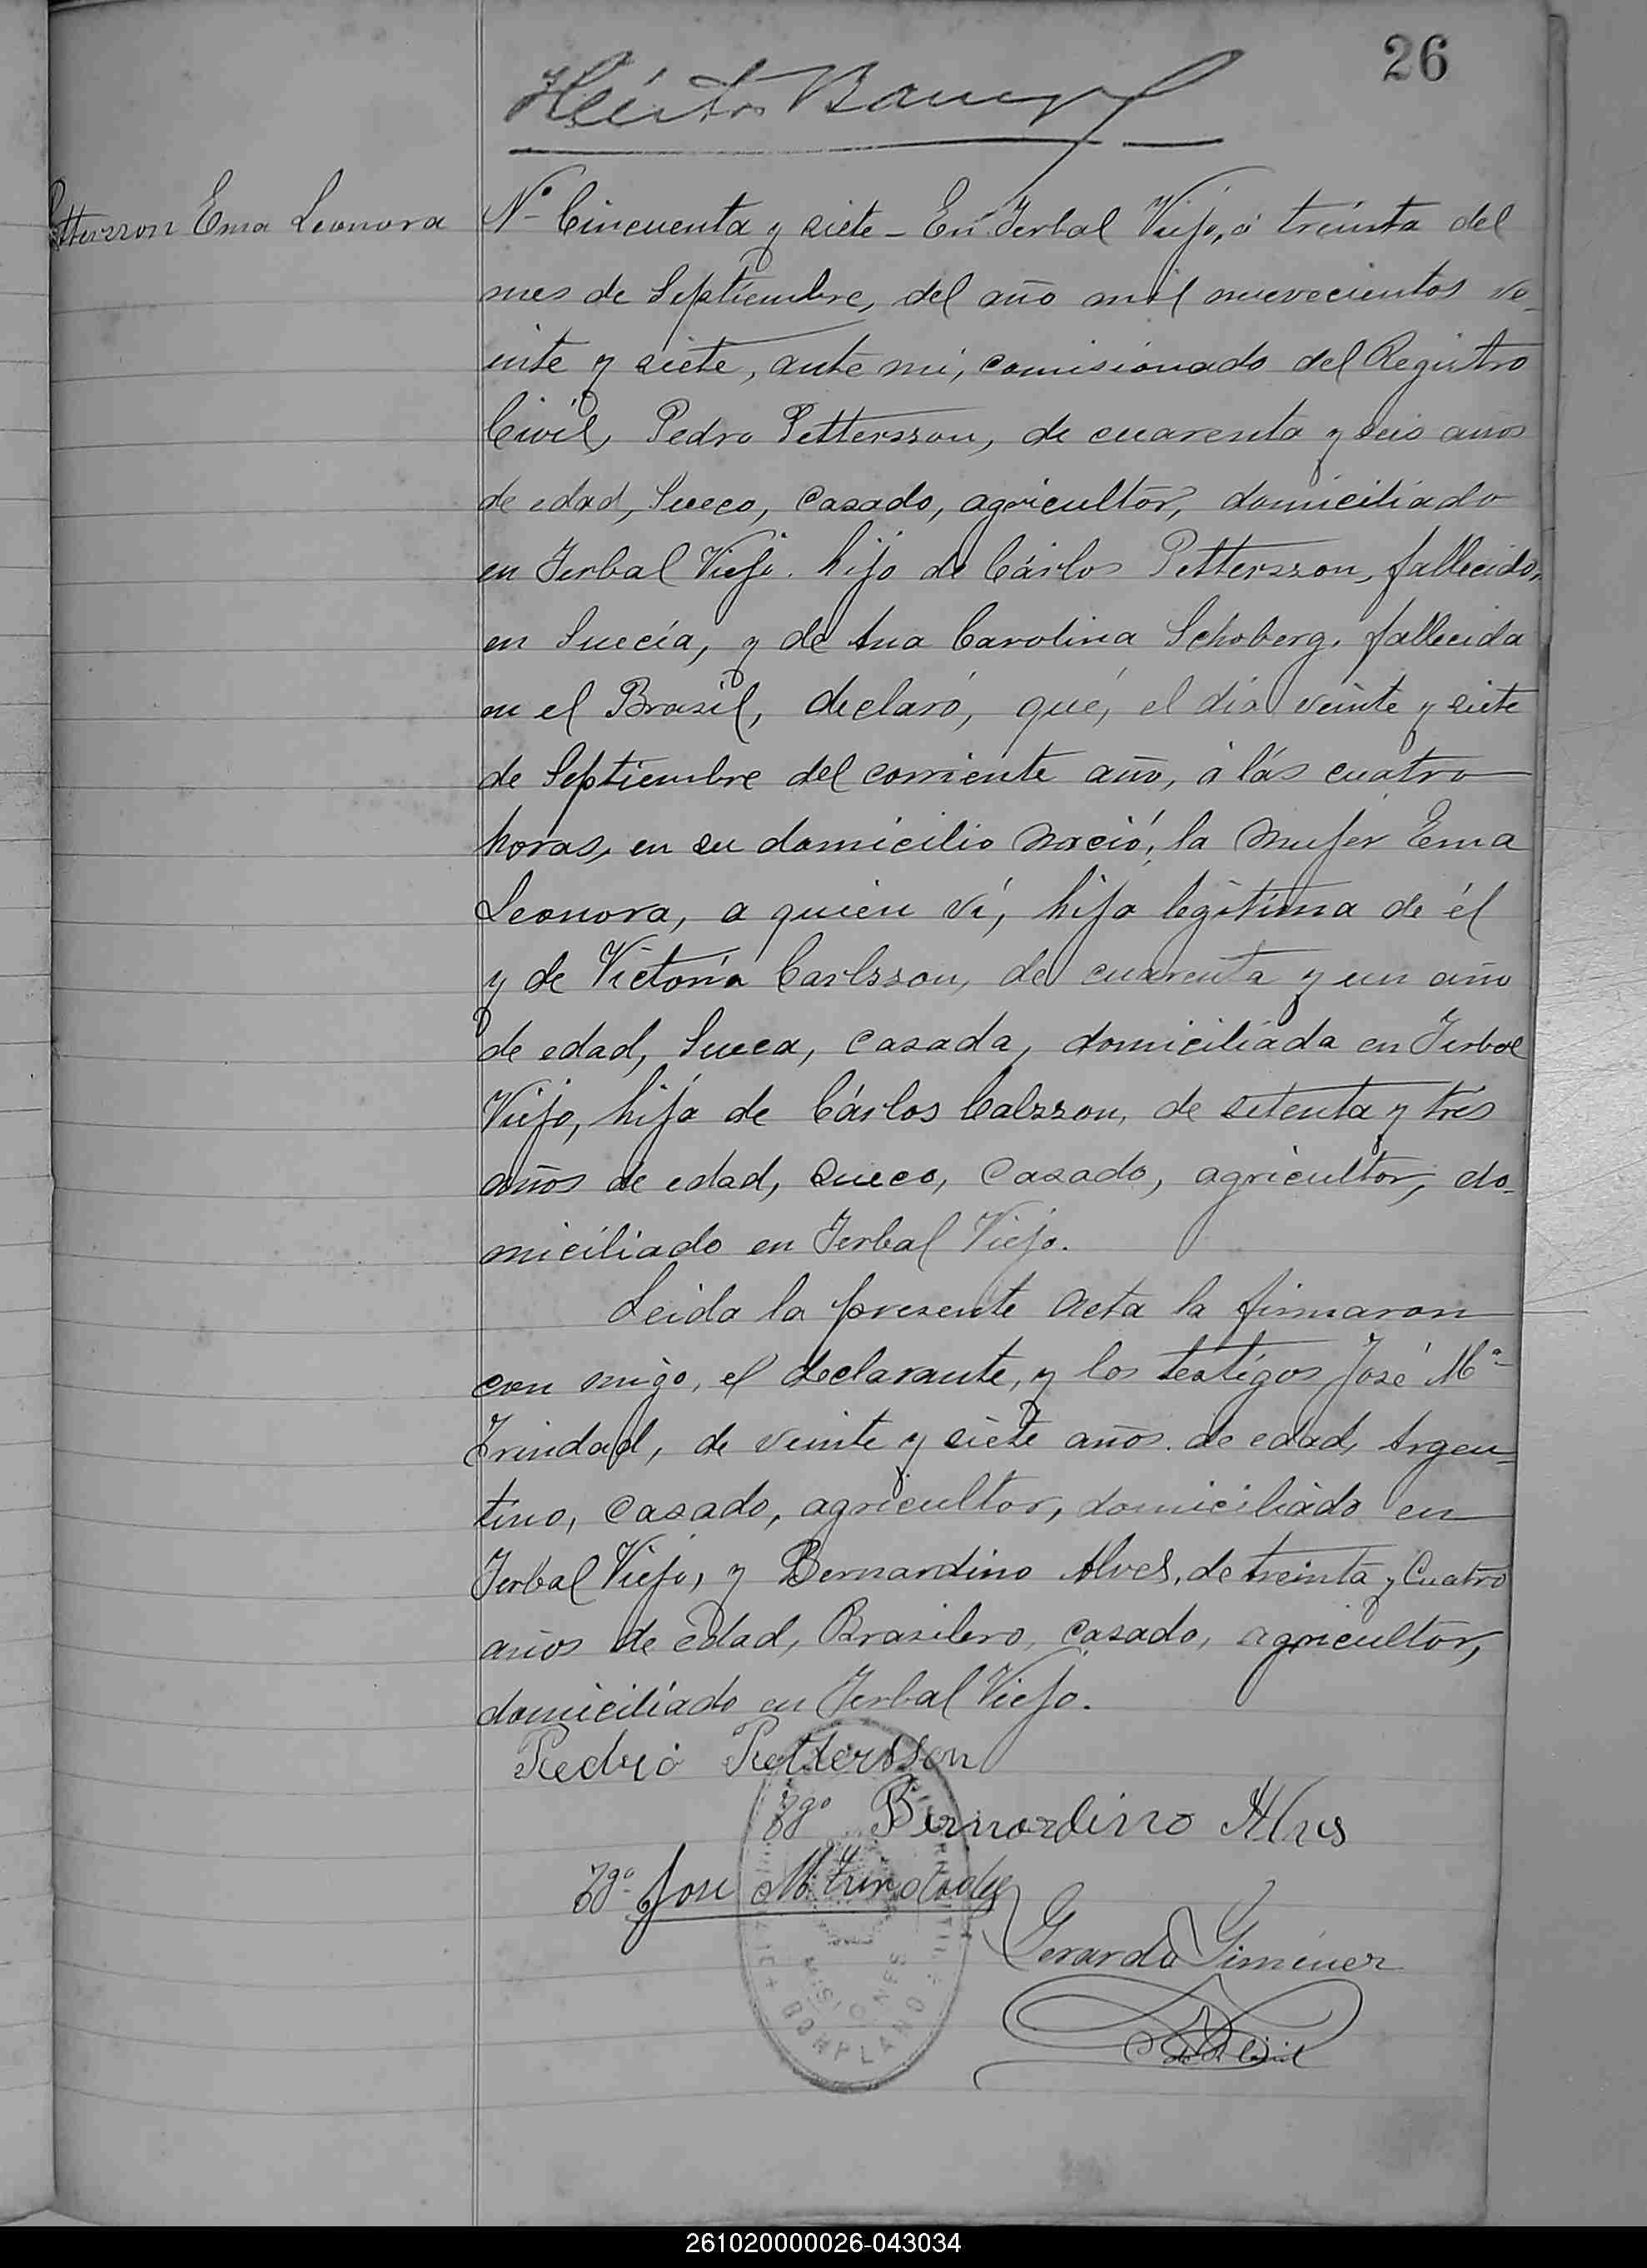 26
Héctor
Pettersson Ema Leonora
Nº Cincuenta y siete - En Yerbal Viejo, á treinta del
mes de Septiembre, del año mil nuevecientos ve-
inte y siete, ante mi, comisionado del Registro
Civil, Pedro Pettersson, de cuarenta y seis años
de edad, Sueco, casado, agricultor, domiciliado
en Yerbal Viejo. hijo de Cárlos Pettersson, fallecido,
en Suecía, y de Ana Carolina Schoberg, fallecida
en el Brasil, declaró, que, el día veinte y siete
de Septiembre del corriente año, á lás cuatro
horas, en su domicilio nació, la mujer Ema
Leonora, a quien ví, hija legítima de él
y de Victoria Carlsson, de cuarenta y un año
de edad, Sueca, casada, domiciliada en Yerbal
Viejo, hija de Cárlos Calsson, de setenta y tres
años de edad, sueco, casado, agricultor, do-
miciliado en Yerbal Viejo.
Leida la presente acta la firmaron
con migo, el declarante, y los testigos José Mª
Trindad, de veinte y siete años de edad, Argen-
tino, casado, agricultor, domiciliado en
Yerbal Viejo, y Bernardino Alves, de treinta y cuatro
años de edad, Brasilero, casado, agricultor,
domiciliado en Yerbal Viejo.
Pedro Pettersson
Tgº Bernardino Alves
Tgº José M Trindade
Gerardo Gimenez
MISIONES
BONPLAND
261020000026-043034